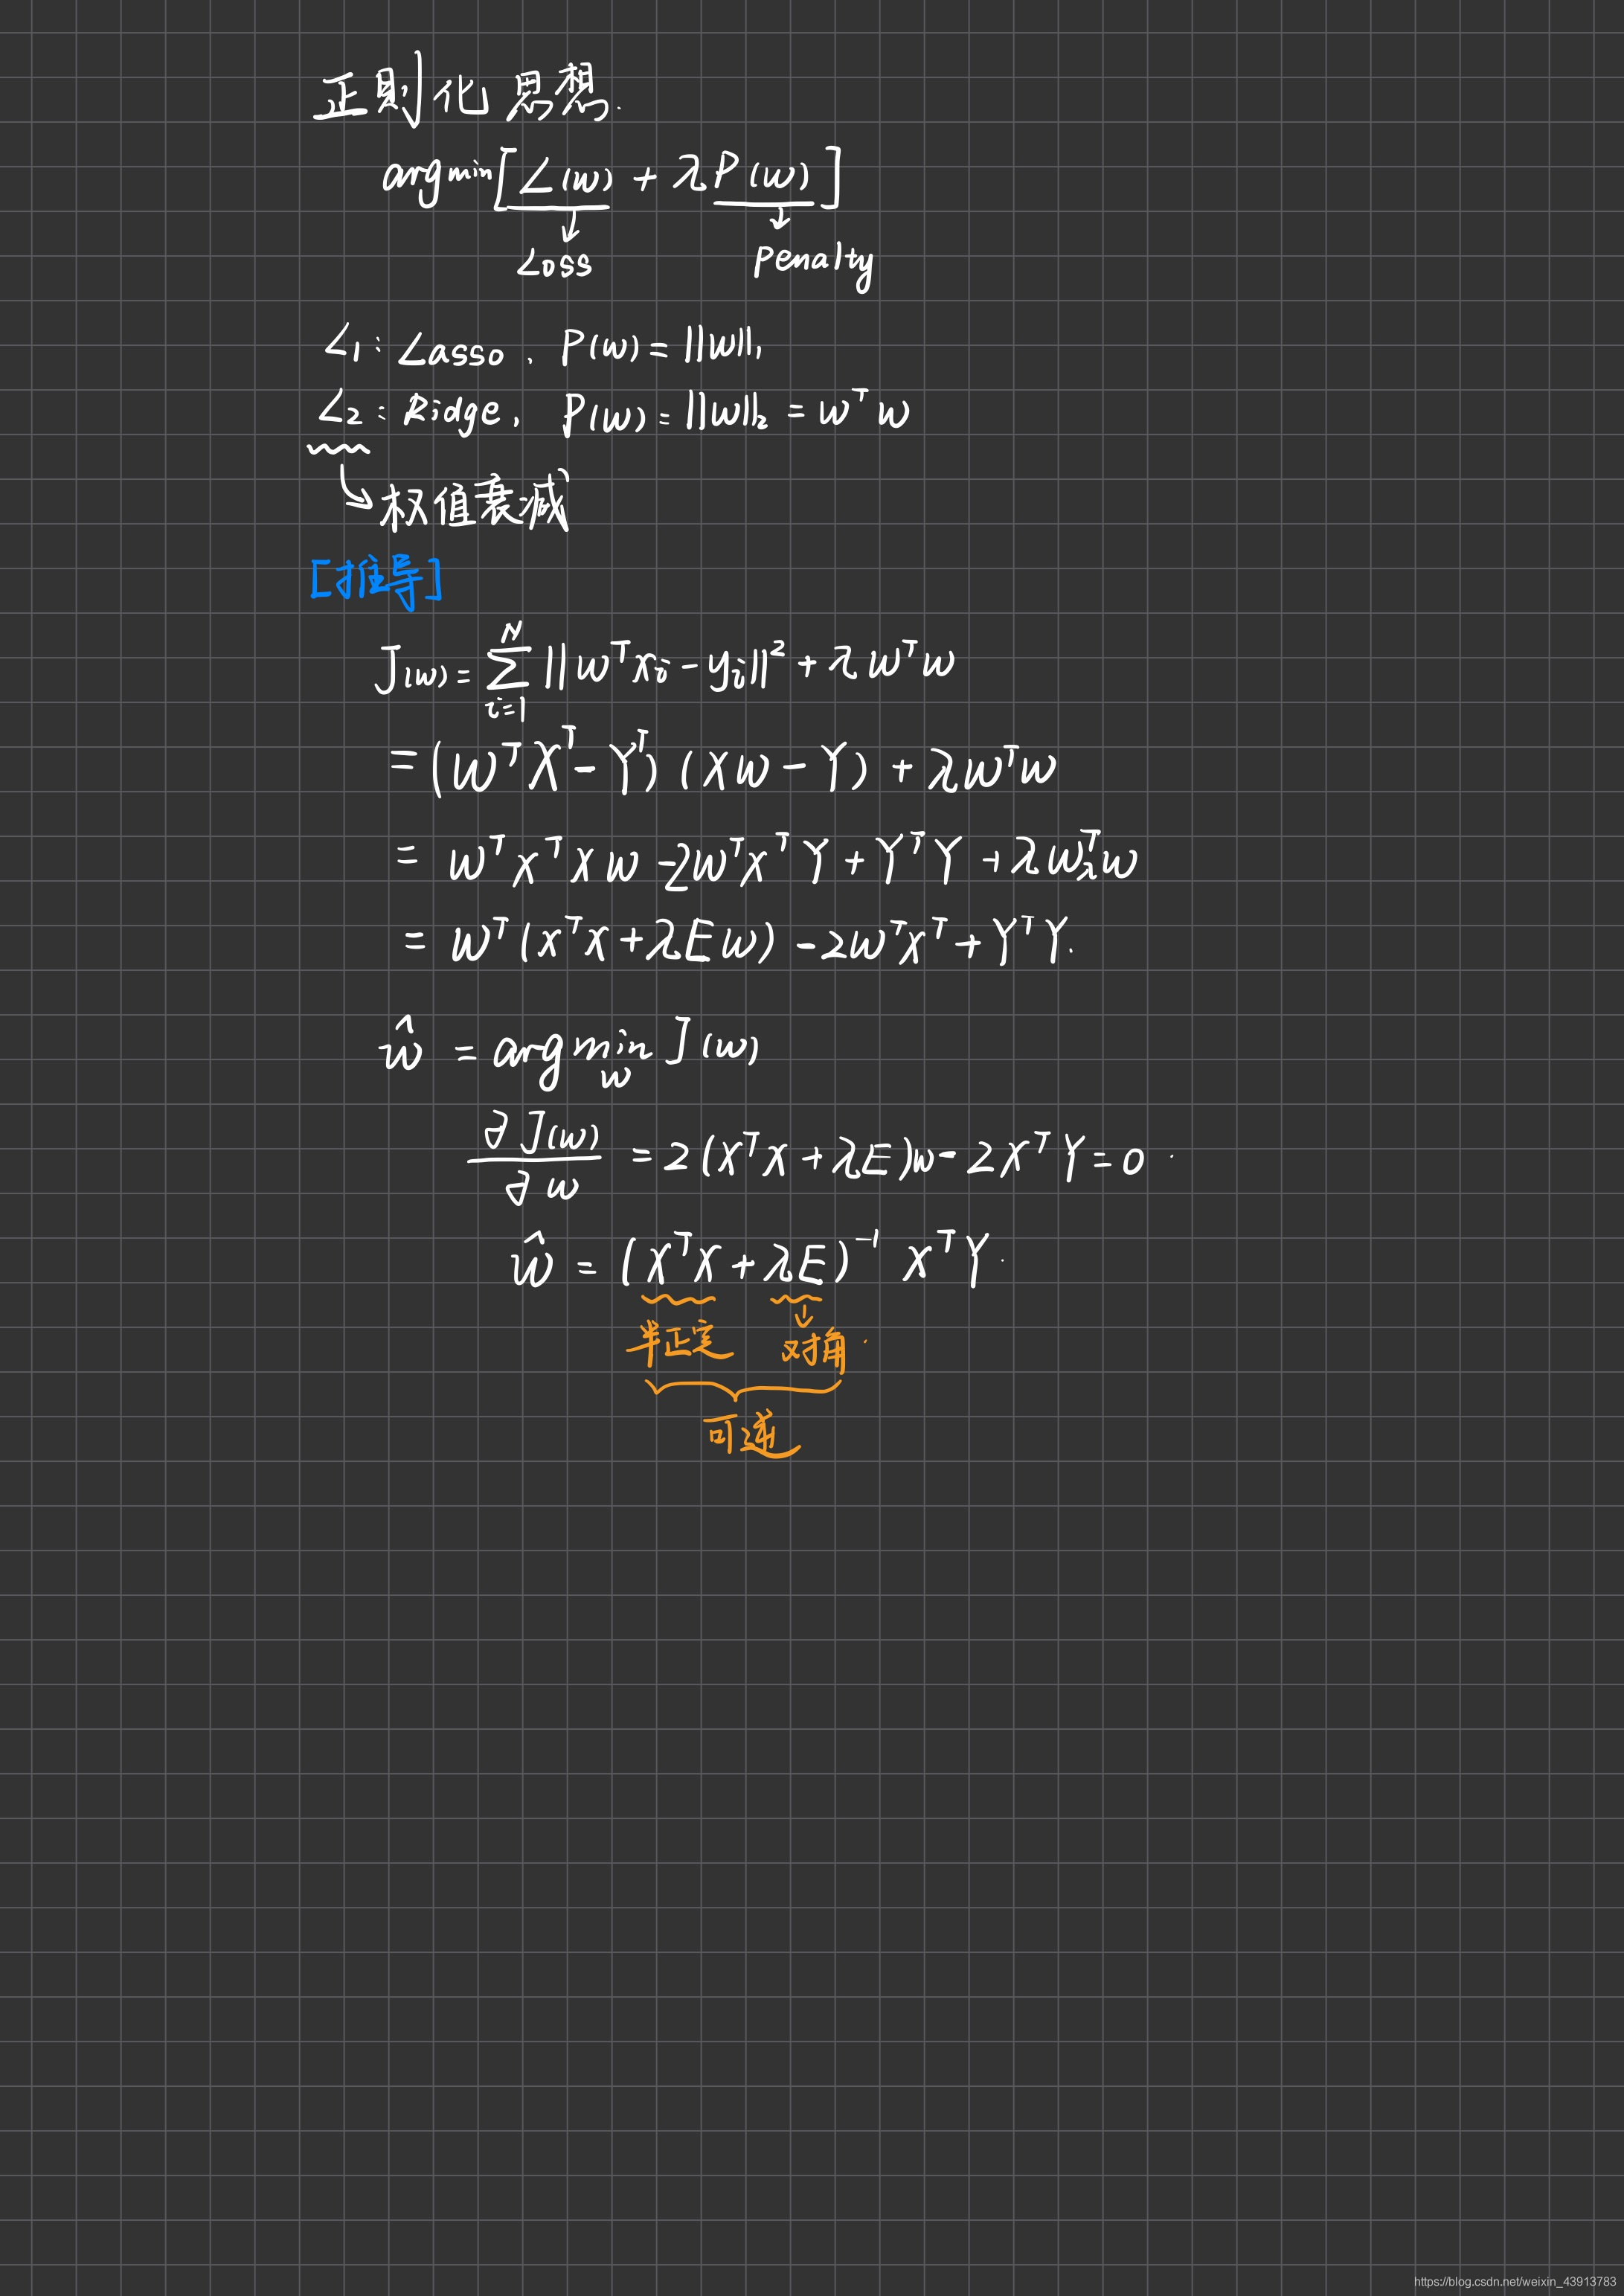 正則化思想.
argmin[L(w) + λP(w)]
Loss
Penalty
L₁: Lasso, P(w) = ||w||₁
L₂: Ridge, P(w) = ||w||₂ = wᵀw
权值衰减
[推导]
J(w) = ∑ᵢ₌₁ᴺ ||wᵀxᵢ - yᵢ||² + λwᵀw
= (WᵀXᵀ - Yᵀ)(XW - Y) + λWᵀW
= WᵀXᵀXW - 2WᵀXᵀY + YᵀY + λWᵀW
= Wᵀ(XᵀX + λEW) - 2WᵀXᵀ + YᵀY.
ŵ = argmin J(w)
w
∂J(w)/∂w = 2(XᵀX + λE)w - 2XᵀY = 0.
ŵ = (XᵀX + λE)⁻¹ XᵀY.
半正定 对角.
可逆
https://blog.csdn.net/weixin_43913783